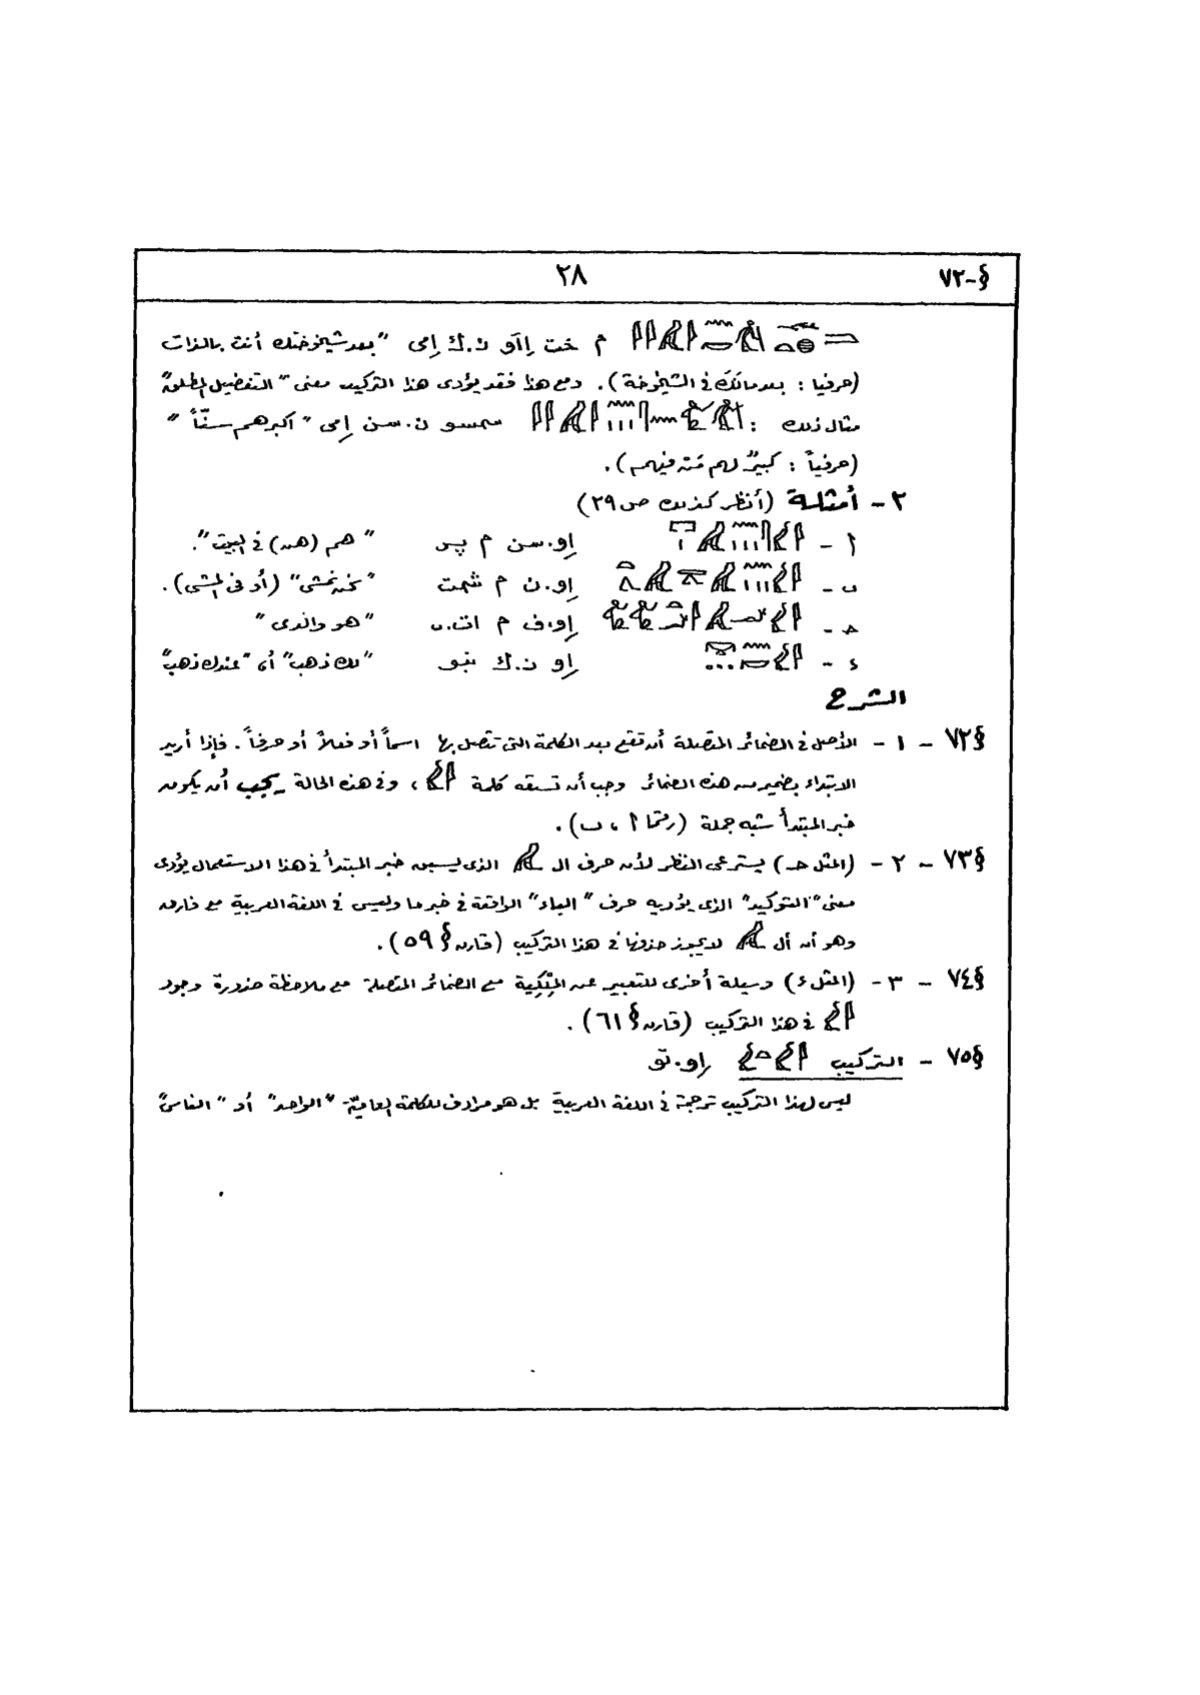 §-٧٢ ٢٨
م خت إاَو ن.ك إمى "بعد شيخوختك أنت بالذات"
(حرفيا : بعد مالك فى الشيخوخة). ومع هذا فقد يؤدى هذا التركيب معنى "التفضيل المطلق"
مثال ذلك : سمسو ن.سن إمى "أكبرهم سنّاً"
(حرفياً : كبيرٌ لهم مَن فيهم).
٢ - أمثلة (أنظر كذلك ص ٢٩)
أ - إو.سن م پر "هم (هن) فى البيت".
ب - إو.ن م شمت "نحن نمشى" (أو فى المشى).
حـ - إو.ف م ات.ى "هو والدى"
ء - إو ن.ك نبو "لك ذهب" أى "عندك ذهب"
الشرح
§٧٢ - ١ - الأصل فى الضمائر المتصلة أن تقع بعد الكلمة التى تتصل بها اسماً أو فعلاً أو حرفاً. فإذا أريد
الابتداء بضمير من هذه الضمائر وجب أن تسبقه كلمة ، وفى هذه الحالة يجب أن يكون
خبر المبتدأ شبه جملة (رقما أ ، ب).
§٧٣ - ٢ - (المثل حـ) يسترعى النظر لأن حرف ال الذى يسبق خبر المبتدأ فى هذا الاستعمال يؤدى
معنى "التوكيد" الذى يؤديه حرف "الباء" الواقعة فى خبر ما وليس فى اللغة العربية مع فارق
وهو أن أل لا يجوز حذفها فى هذا التركيب (قارن § ٥٩).
§٧٤ - ٣ - (المثل ء) وسيلة أخرى للتعبير عن المِلْكية مع الضمائر المتصلة مع ملاحظة ضرورة وجود
فى هذا التركيب (قارن § ٦١).
§٧٥ - التركيب إو.تو
ليس لهذا التركيب ترجمة فى اللغة العربية بل هو مرادف للكلمة العاميّة "الواحد" أو "الناس"